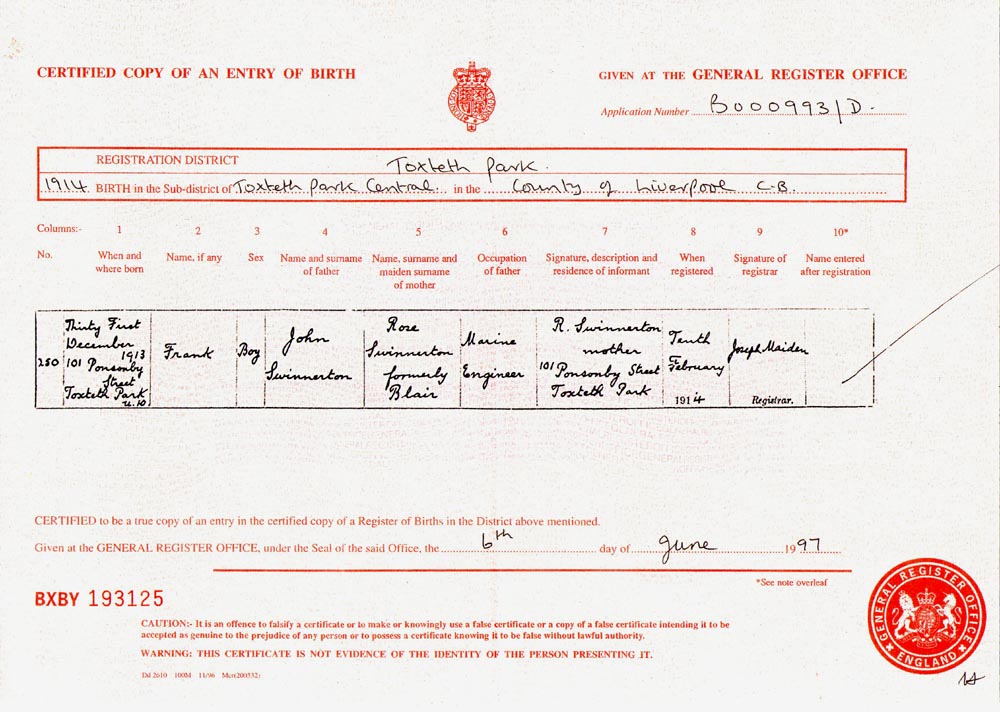 CERTIFIED COPY OF AN ENTRY OF BIRTH
GIVEN AT THE GENERAL REGISTER OFFICE
Application Number B000993/D.
REGISTRATION DISTRICT Toxteth Park.
1914. BIRTH in the Sub-district of Toxteth Park Central in the County of Liverpool C.B.
Columns:- 1 2 3 4 5 6 7 8 9 10*
No. When and where born Name, if any Sex Name and surname of father Name, surname and maiden surname of mother Occupation of father Signature, description and residence of informant When registered Signature of registrar Name entered after registration
250
Thirty First
December
1913
101 Ponsonby
Street
Toxteth Park
U.D
Frank
Boy
John
Swinnerton
Rose
Swinnerton
formerly
Blair
Marine
Engineer
R. Swinnerton
mother
101 Ponsonby Street
Toxteth Park
Tenth
February
1914
Joseph Maiden
Registrar.
CERTIFIED to be a true copy of an entry in the certified copy of a Register of Births in the District above mentioned.
Given at the GENERAL REGISTER OFFICE, under the Seal of the said Office, the 6th day of June 1997
*See note overleaf
BXBY 193125
CAUTION:- It is an offence to falsify a certificate or to make or knowingly use a false certificate or a copy of a false certificate intending it to be
accepted as genuine to the prejudice of any person or to possess a certificate knowing it to be false without lawful authority.
WARNING: THIS CERTIFICATE IS NOT EVIDENCE OF THE IDENTITY OF THE PERSON PRESENTING IT.
Dd 2610 100M 11/96 Mcr(200532)
GENERAL REGISTER OFFICE
ENGLAND